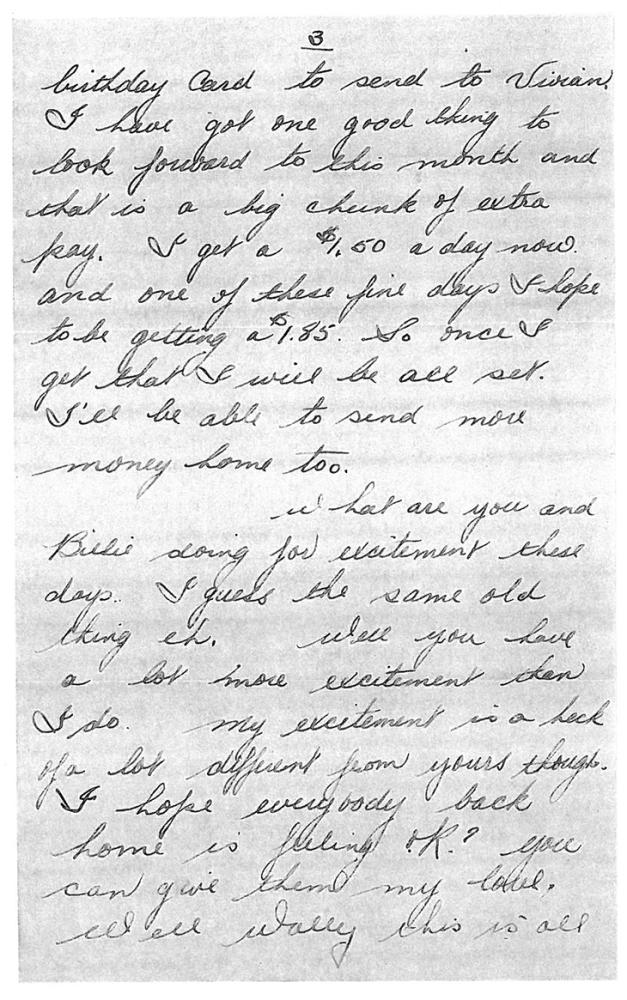 3
birthday Card to send to Vivian.
I have got one good thing to
look forward to this month and
that is a big chunk of extra
pay. I get a $1.50 a day now
and one of these fine days I hope
to be getting a $1.85. So once I
get that I will be all set.
I'll be able to send more
money home too.
What are you and
Billie doing for excitement these
days. I guess the same old
thing eh. Well you have
a lot more excitement than
I do. My excitement is a heck
of a lot different from yours though.
I hope everybody back
home is feeling O.K.? you
can give them my love.
Well Wally this is all